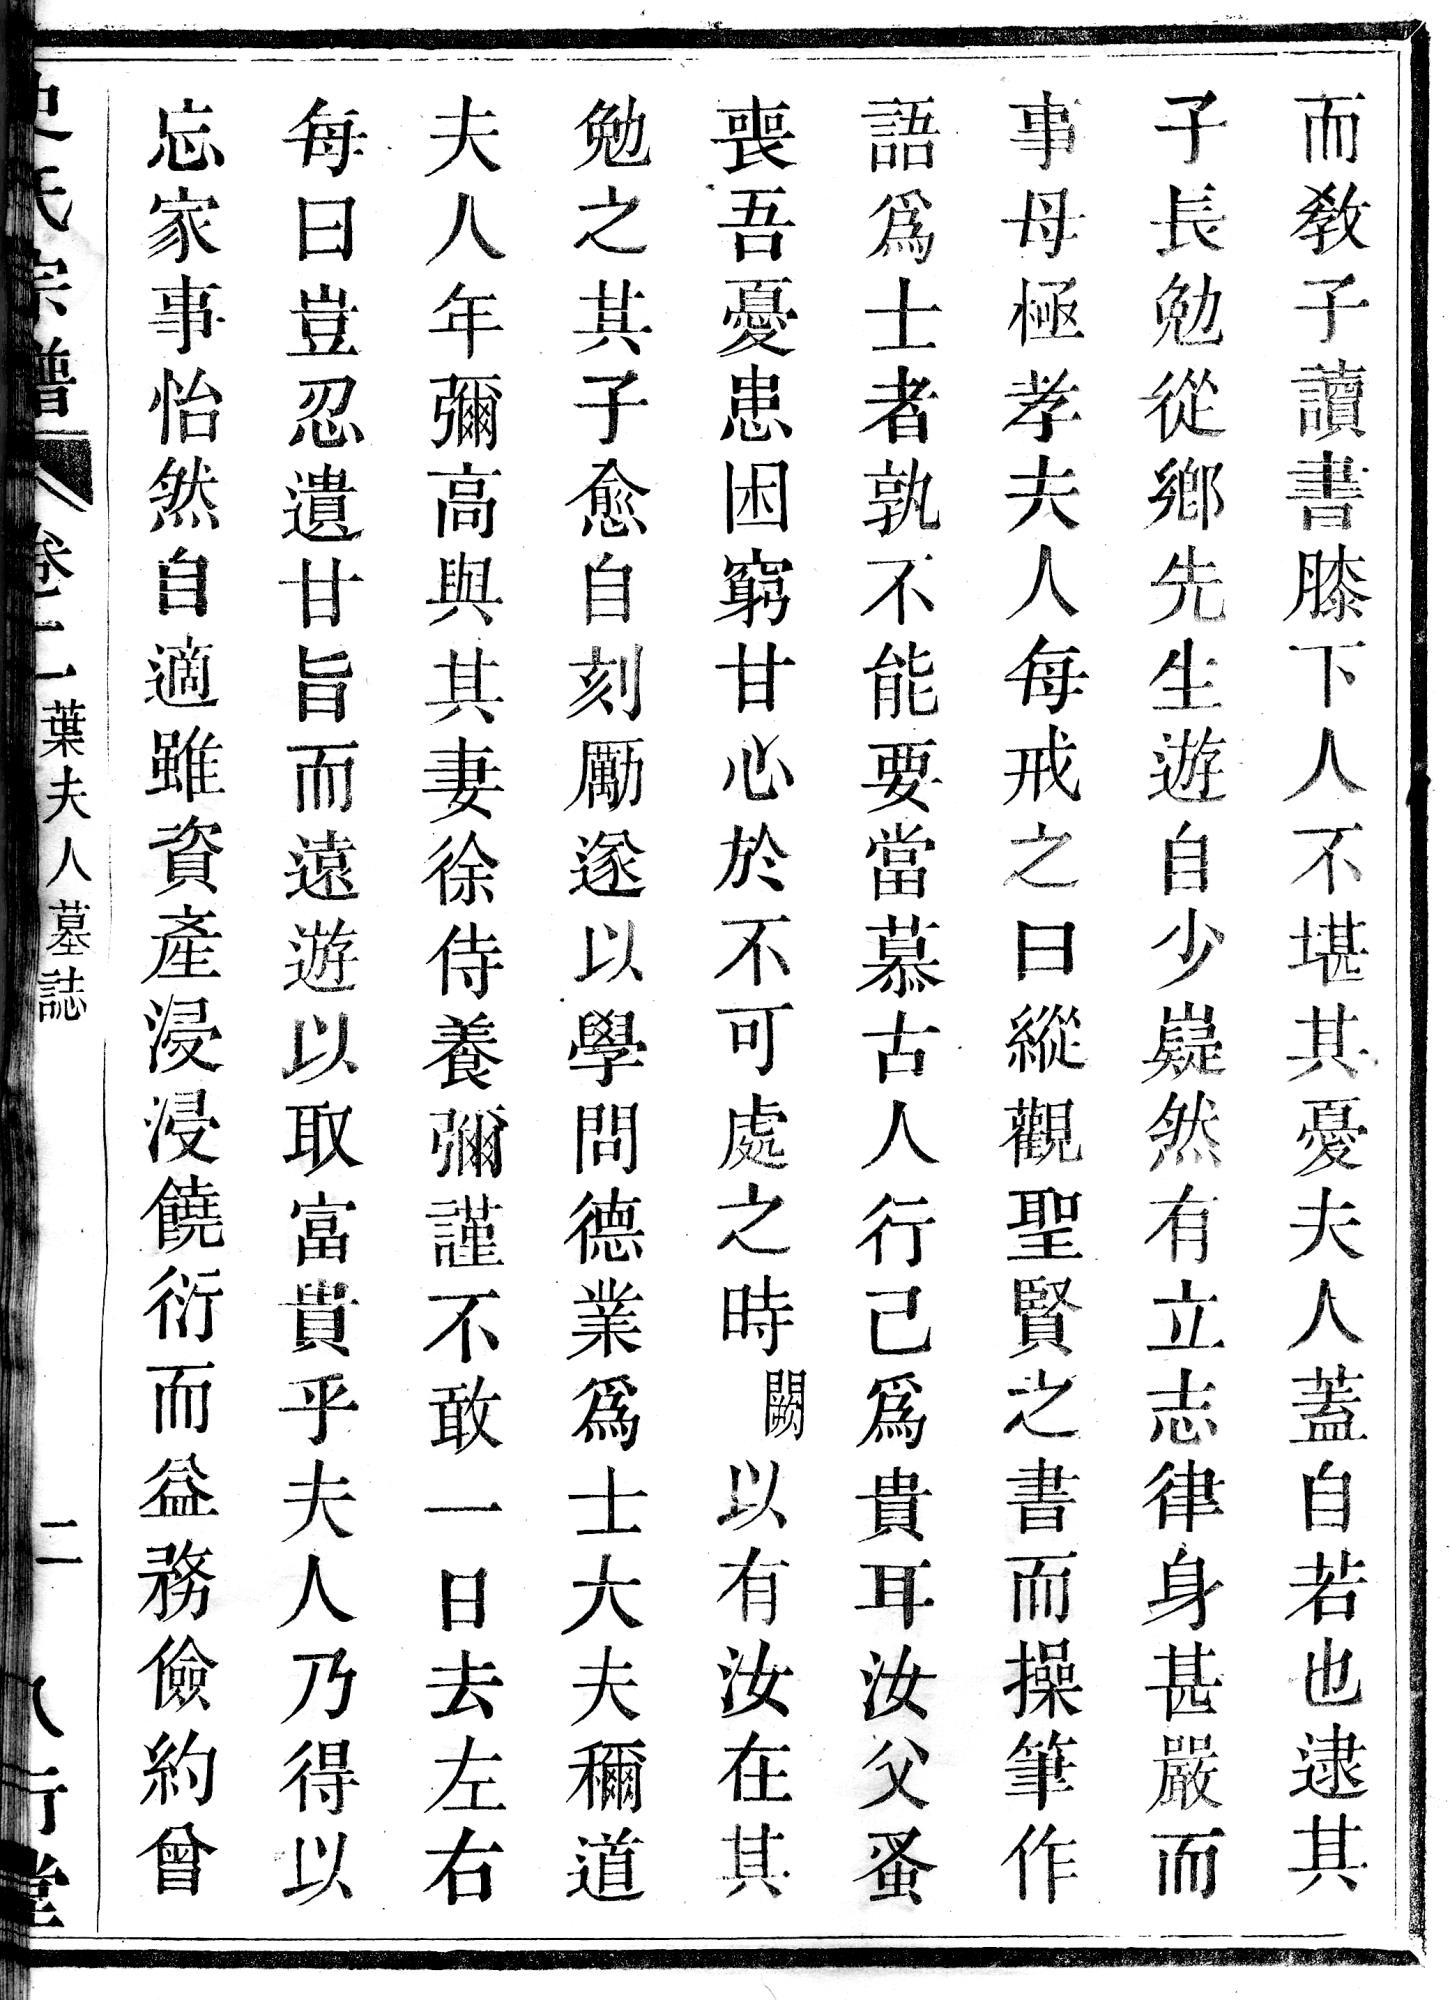 而教子讀書膝下人不堪其憂夫人蓋自若也逮其
子長勉從鄉先生遊自少嶷然有立志律身甚嚴而
事母極孝夫人每戒之曰縱觀聖賢之書而操筆作
語爲士者孰不能要當慕古人行己爲貴耳汝父蚤
喪吾憂患困窮甘心於不可處之時闕以有汝在其
勉之其子愈自刻厲遂以學問德業爲士大夫稱道
夫人年彌高與其妻徐侍養彌謹不敢一日去左右
每曰豈忍遺甘旨而遠遊以取富貴乎夫人乃得以
忘家事怡然自適雖資產浸浸饒衍而益務儉約曾
史氏宗譜 卷二 葉夫人墓誌 二 八行堂